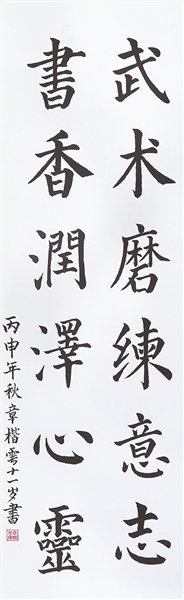 武术磨練意志
書香潤澤心靈
丙申年秋章楷雲十一岁書